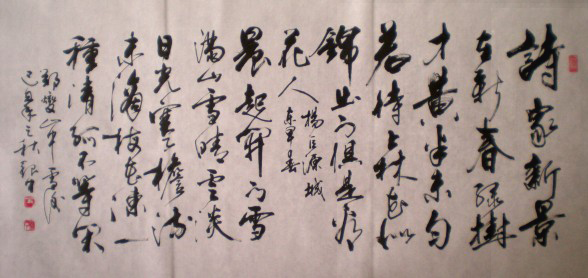 詩家新景
在新春绿樹
才黄半未匀
若待上林花似
錦出门俱是看
花人
楊巨源城
東早春
晨起開门雪
满山雪晴雲淡
日光寒檐流
未滴梅花凍一
種清孤不等閑
鄭燮山中雪後
之秋